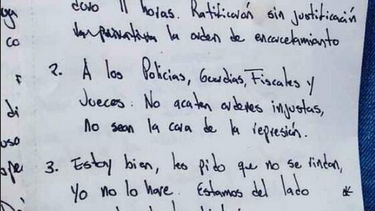 duró 11 horas. Ratificarón sin justificación
la orden de encarcelamiento
2. A los Policías, Guardias, Fiscales y
Jueces. No acaten ordenes injustas,
No sean la cara de la represión.
3. Estoy bien, les pido que no se rindan,
Yo no lo haré. Estamos del lado